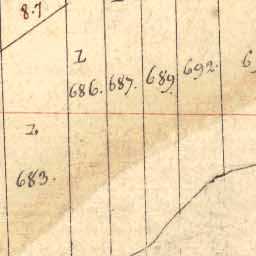 8.7
686. 687. 689. 692.
683.